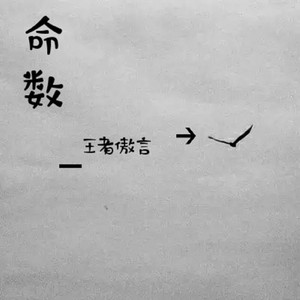 命
数
王者傲言